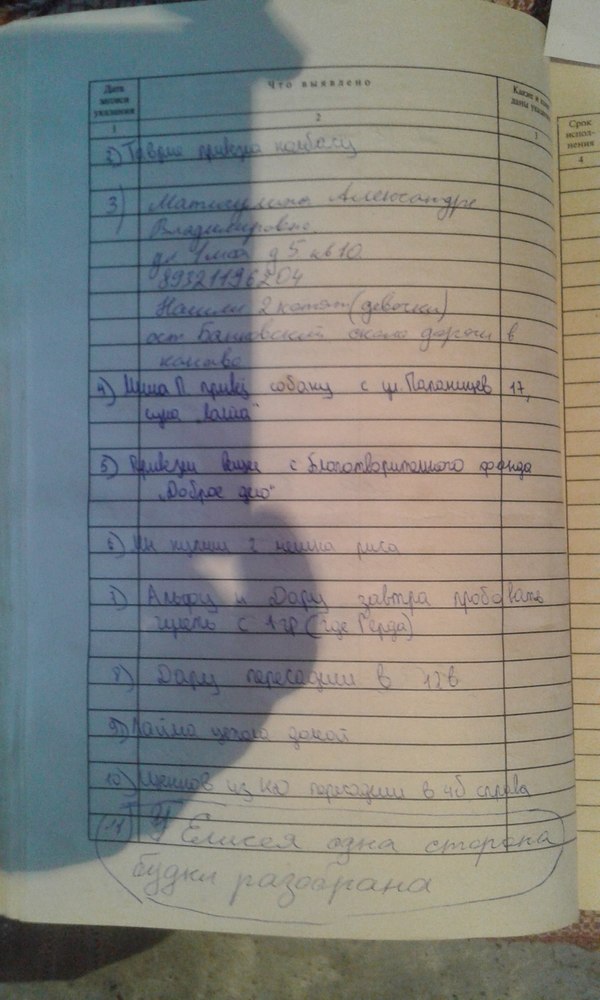 Дата записи указания
Что выявлено
Какие и кому даны указания
Срок испол-нения
1
2
3
4
2) Таврия привезла колбасу
3) Александре
Владимировне
ул 1 мая д 5 кв 10
89321196204
Нашли 2 котят (девочки)
ост около дороги в
4) привез собаку с ул. Папанинцев 17,
5) Привезли вещи с Благотворительного фонда
"Доброе дело"
6) купили 2 мешка риса
7) Альфу и Дару завтра пробовать
гулять с 1 гр (где Герда)
8) Дару пересадили в 12в
9) Лайма уехала домой
10) Щенков из пересадили в 4б справа
(11) У Елисея одна сторона
будки разобрана